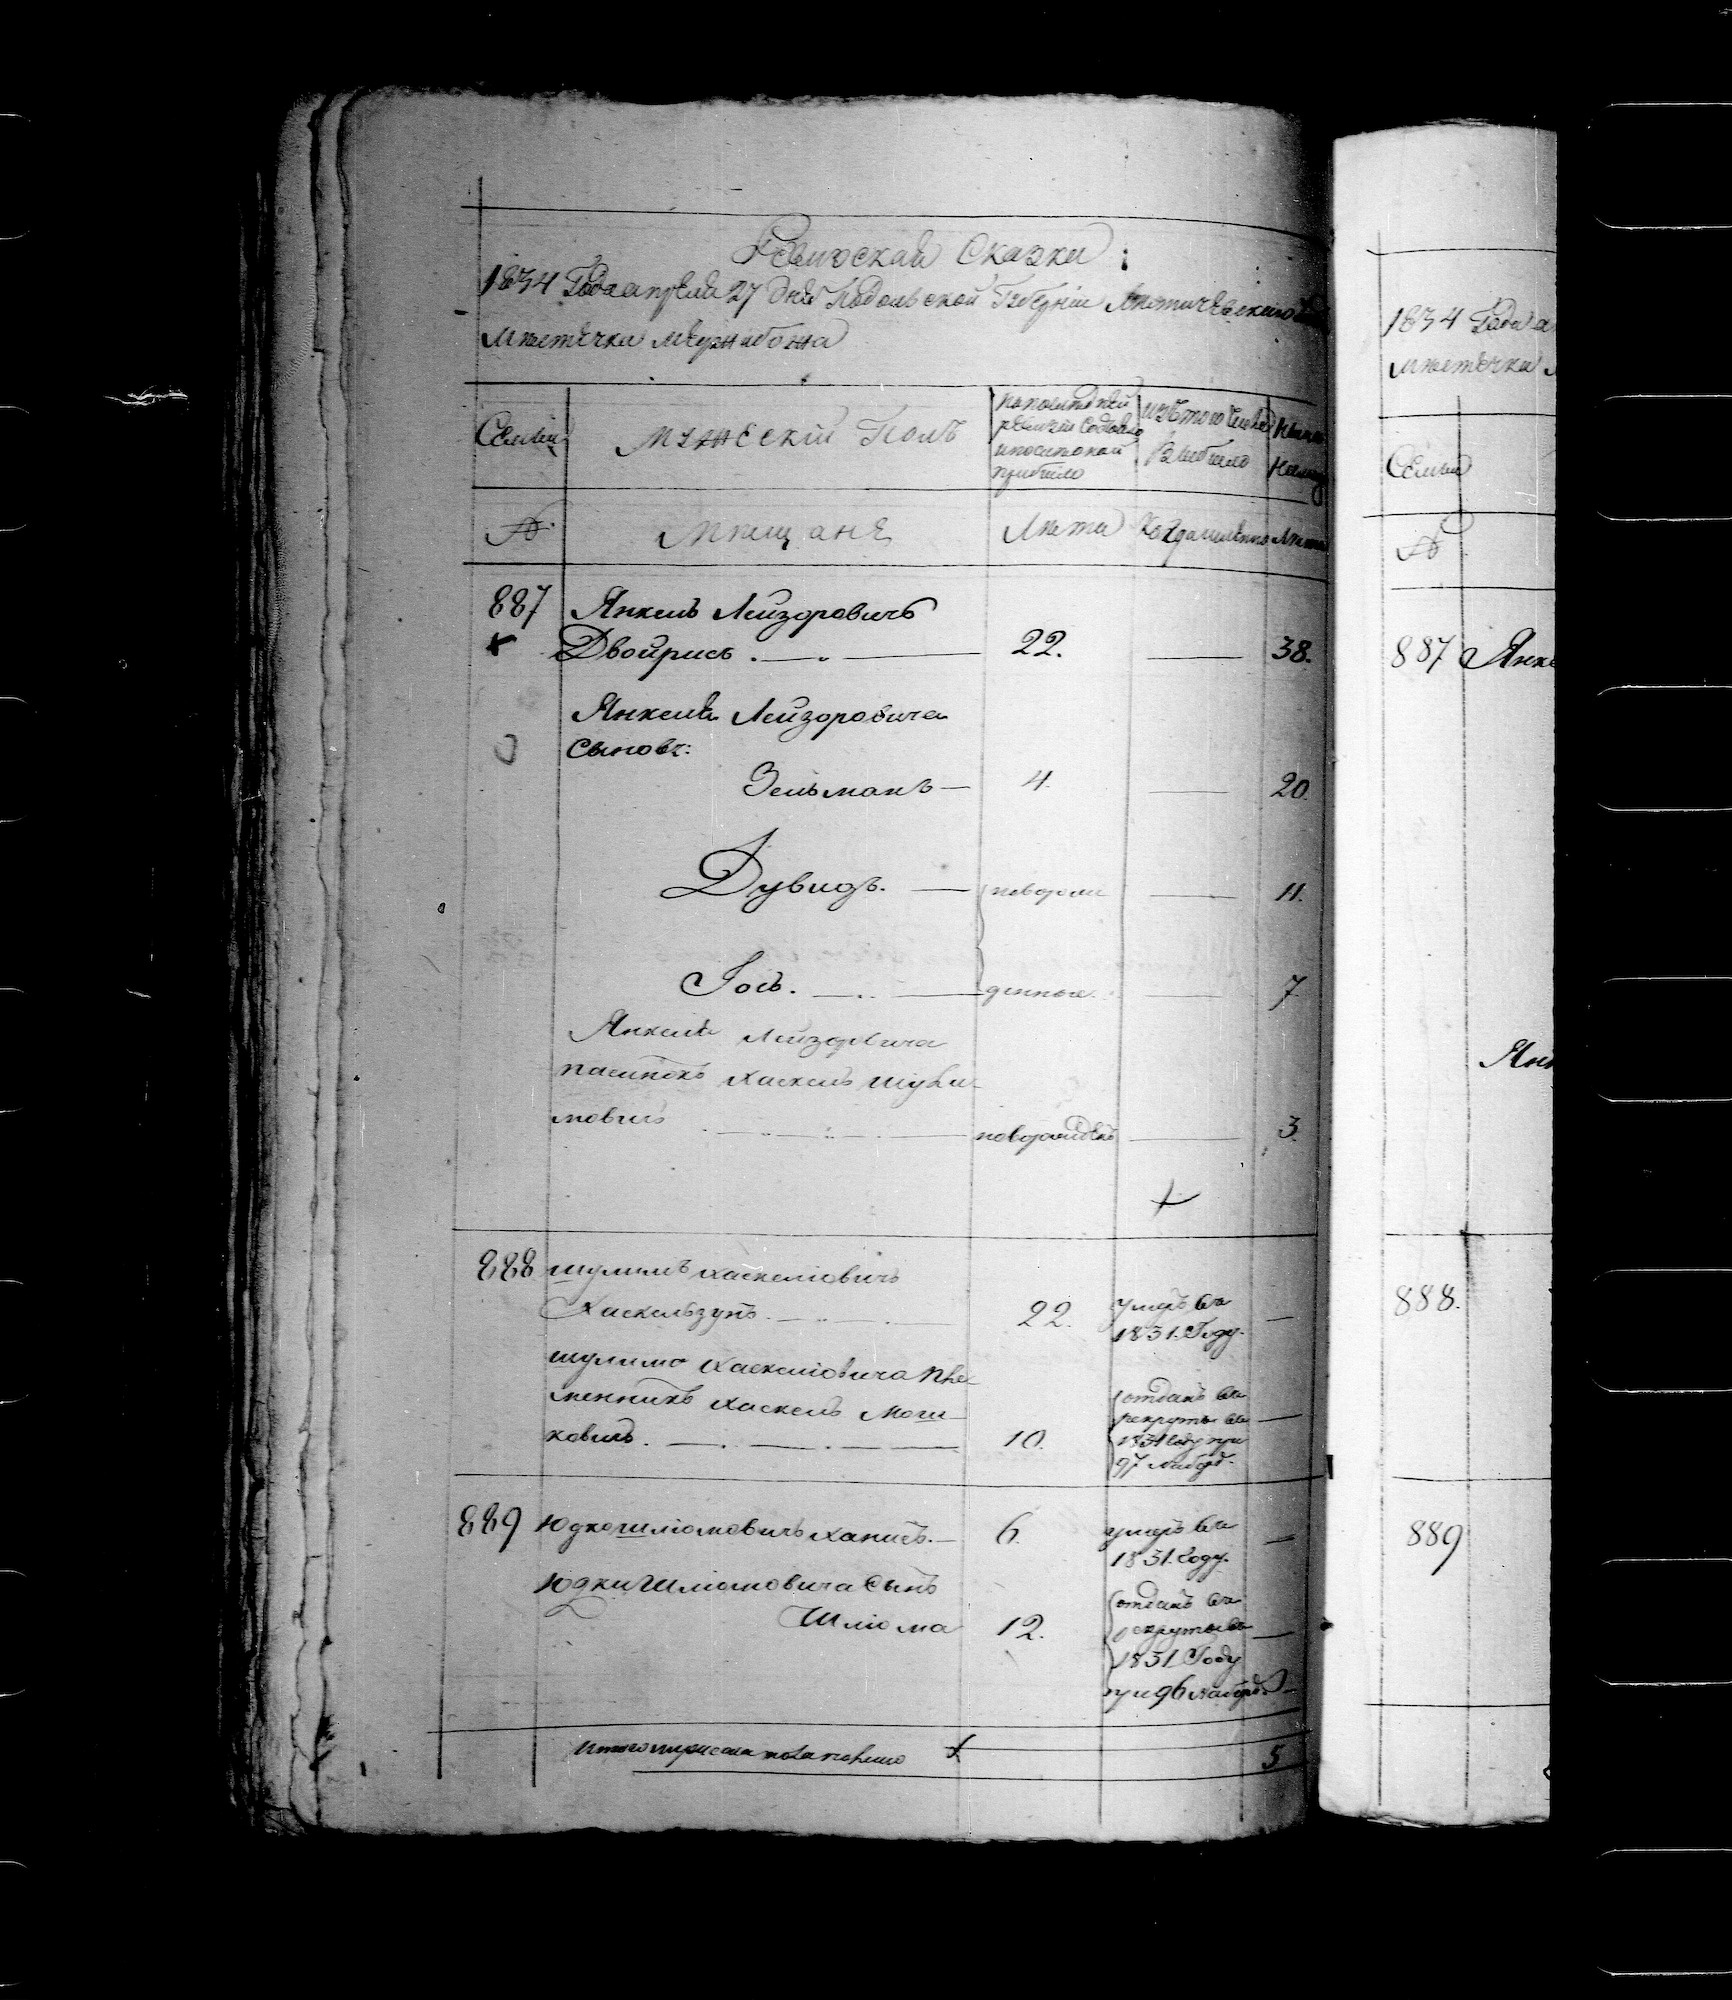 Ревизская Сказка
1834 Года апреля 27 дня Подольской Губернии Летичевского
местечка межибожа
Семьи
Мужеский Полъ
По последней
ревизии состояло
и после оной
прибыло
Изъ того числа
Выбыло
Ныне
на лицо
№
Мещане
Лета
Когда именно
Лета
887
Янкель Лейзоровичъ
Двойрисъ
22.
38.
Янкеля Лейзоровича
Сыновъ:
Зельманъ
4
20
Дувидъ.
новорож
11.
Іось.
денные
7
Янкеля Лейзоровича
пасынокъ Хаскель Шули-
мовичъ
новорожденъ
3
888
Шулимъ Хаскеліовичъ
22.
умеръ въ
1831. Году.
Шулима Хаскеліовича пле-
менникъ Хаскель Мош-
ковичъ.
10.
отданъ въ
рекруты въ
1831 Году при
97 наборе.
889
Юдко Шліомовичъ
6.
умеръ въ
1831. Году.
Юдки Шліомовича Сынъ
Шліома
12.
отданъ въ
рекруты въ
1831 Году
при 96 наборе
Итого
5
1834 Года
местечка
Семьи
№
887
888.
889